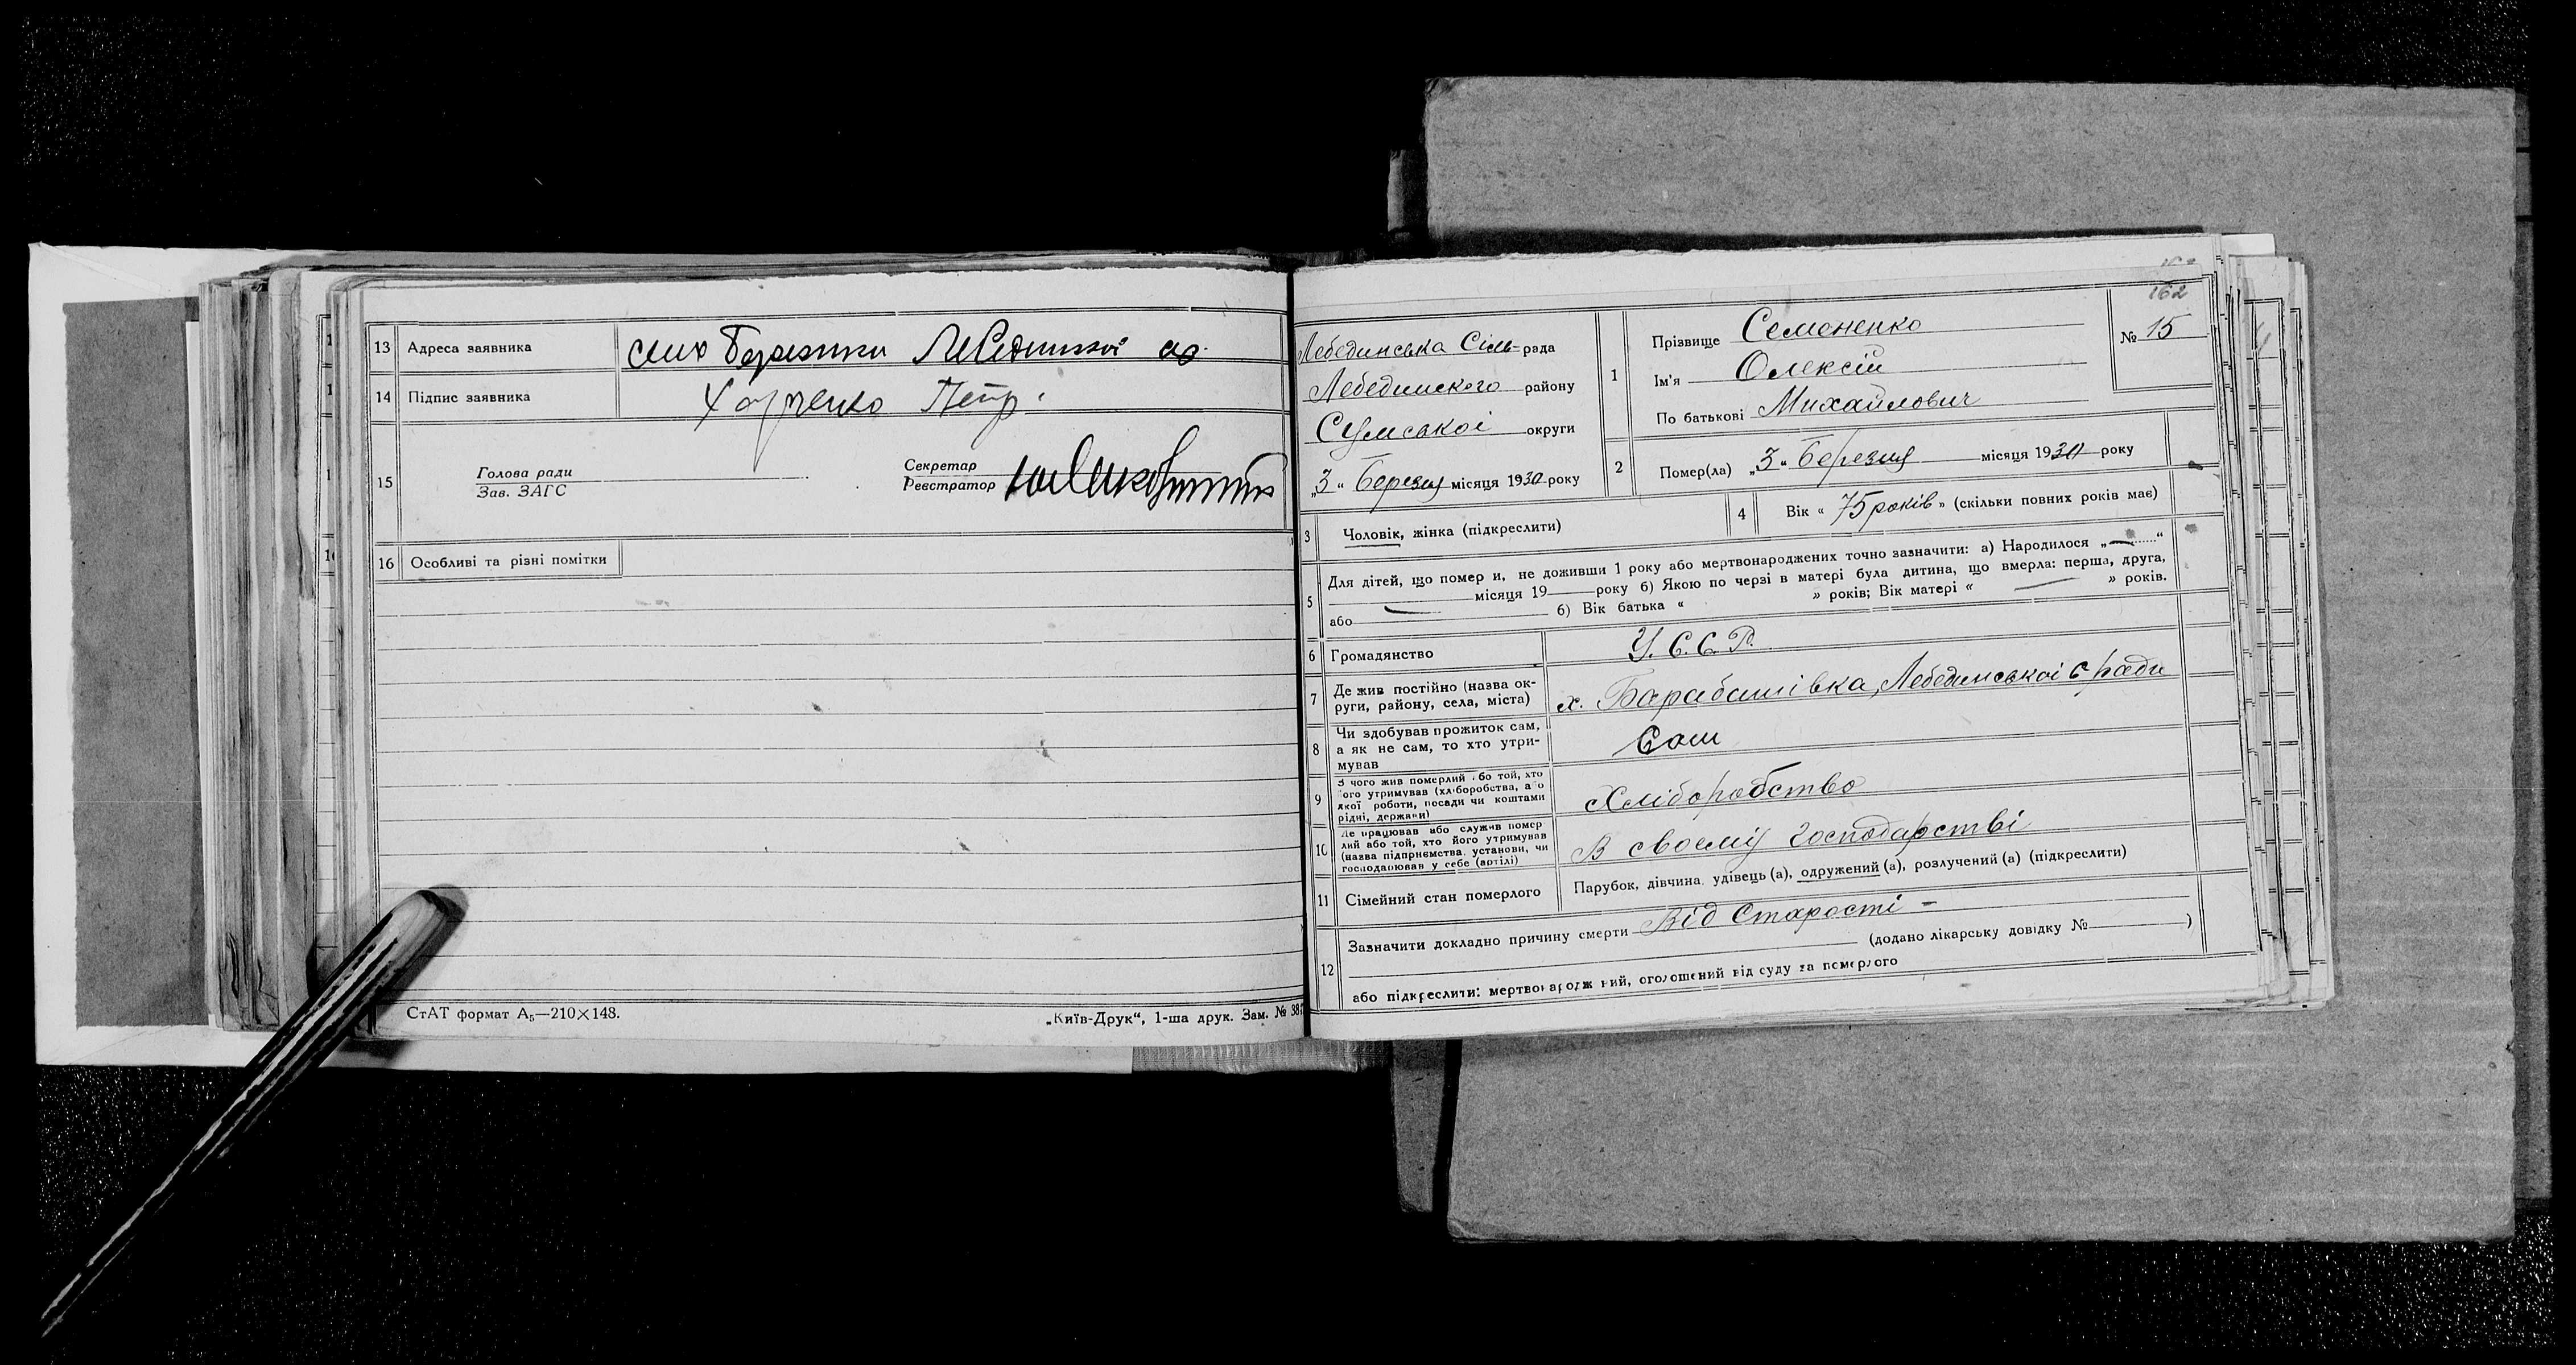 13 Адреса заявника село
14 Підпис заявника Харченко Петр.
15 Голова ради
Зав. ЗАГС
Секретар
Реєстратор
16 Особливі та різні помітки
СтАТ формат А5—210×148.
„Київ-Друк“, 1-ша друк. Зам. № 38
162
Лебединська Сіль-рада
Лебединского району
Сумської округи
„3“ Березня місяця 1930 року
1 Прізвище Семененко
Ім'я Олексій
По батькові Михайлович
№ 15
2 Помер(ла) „3“ Березня місяця 1930 року
3 Чоловік, жінка (підкреслити)
4 Вік « 75 років » (скільки повних років має)
5 Для дітей, що помер и, не доживши 1 року або мертвонароджених точно зазначити: а) Народилося „ “
місяця 19 року б) Якою по черзі в матері була дитина, що вмерла: перша, друга,
або б) Вік батька « » років; Вік матері « » років.
6 Громадянство У.С.С.Р.
7 Де жив постійно (назва ок-
руги, району, села, міста) х. Барабашівка, Лебединської с-ради
8 Чи здобував прожиток сам,
а як не сам, то хто утри-
мував Сам
9 З чого жив померлий або той, хто
його утримував (хліборобства, або
якої роботи, посади чи коштами
рідні, держави) Хліборобство
10 Де працював або служив помер
лий або той, хто його утримував
(назва підприємства, установи, чи
господарював у себе (артілі) В своему господарстві
11 Сімейний стан померлого Парубок, дівчина, удівець (а), одружений (а), розлучений (а) (підкреслити)
12 Зазначити докладно причину смерти Від Старості -
(додано лікарську довідку № )
або підкреслити: мертвонароджений, оголошений від суду за померлого